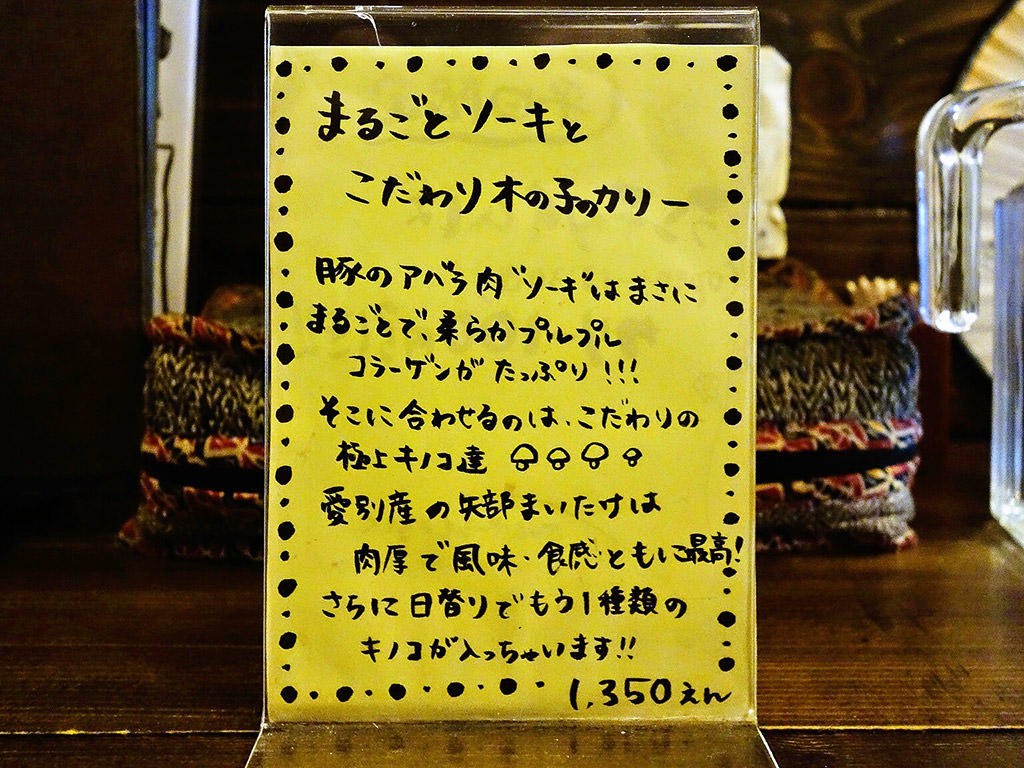 まるごとソーキと
こだわり木の子のカリー
豚のアバラ肉"ソーキ"はまさに
まるごとで、柔らかプルプル
コラーゲンがたっぷり!!!
そこに合わせるのは、こだわりの
極上キノコ達
愛別産の矢部まいたけは
肉厚で風味・食感ともに最高!
さらに日替りでもう1種類の
キノコが入っちゃいます!!
1,350えん